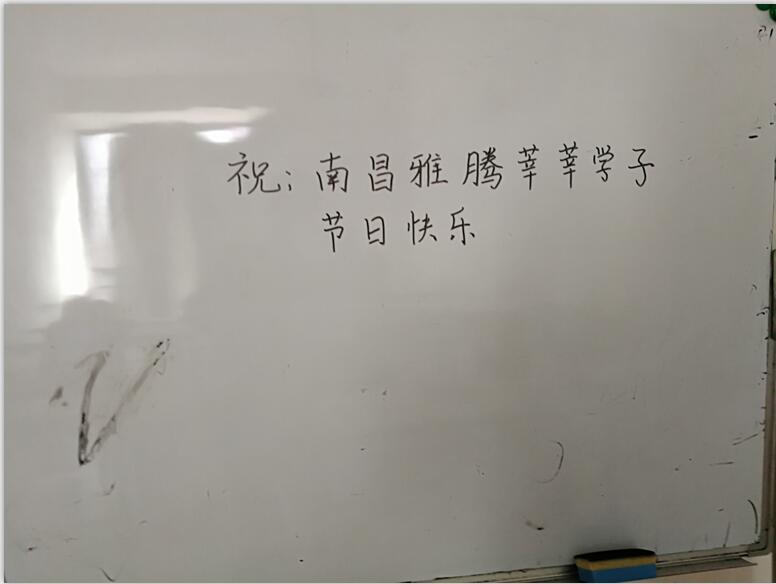 祝：南昌雅腾莘莘学子
节日快乐